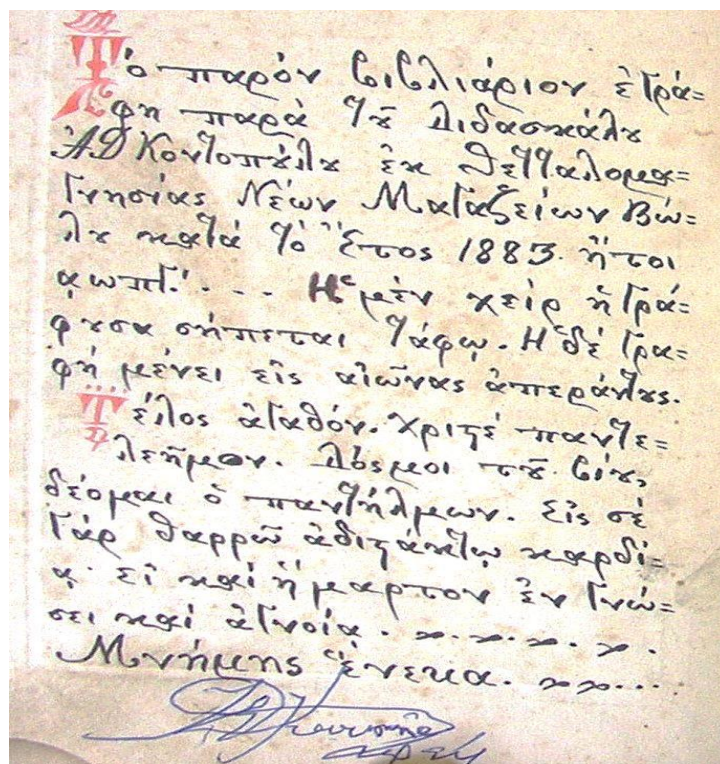 Τὸ παρὸν βιβλιάριον ἐγρά=
φη παρὰ τοῦ Διδασκάλου
Ἀ Δ Κοντοπούλου ἐκ Θετταλομα=
γνησίας Νέων Μαγαζείων Βώ=
λου κατὰ τὸ ἔτος 1883. ἤτοι
αωπγ΄. . . . Ἡ μὲν χεὶρ ἡ γρά=
φουσα σήπεται τάφῳ. Ἡ δὲ γρα=
φὴ μένει εἰς αἰῶνας ἀπεράντους.
Τέλος ἀγαθόν. Χριστέ παντε=
λεῆμον. Δός μοι τοῦ βίου,
δέομαι ὁ παντλήμων. εἰς σὲ
γὰρ θαρρῶ ἀδιστάκτῳ καρδί=
ᾳ. εἰ καὶ ἥμαρτον ἐν γνώ=
σει καὶ ἀγνοίᾳ.
Μνήμης ἕνεκα.